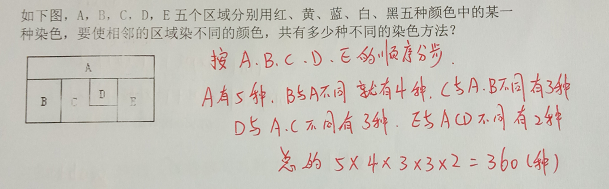 如下图，A，B，C．D，E五个区域分别用红、黄、蓝、白、黑五种颜色中的某一
种染色，要使相邻的区域染不同的颜色，共有多少种不同的染色方法？
A
B
C
D
E
按A.B.C.D.E的顺序分步.
A有5种. B与A不同 就有4种. C与A.B不同有3种
D与A.C不同有3种. E与ACD不同有2种
总的 5×4×3×3×2=360(种)